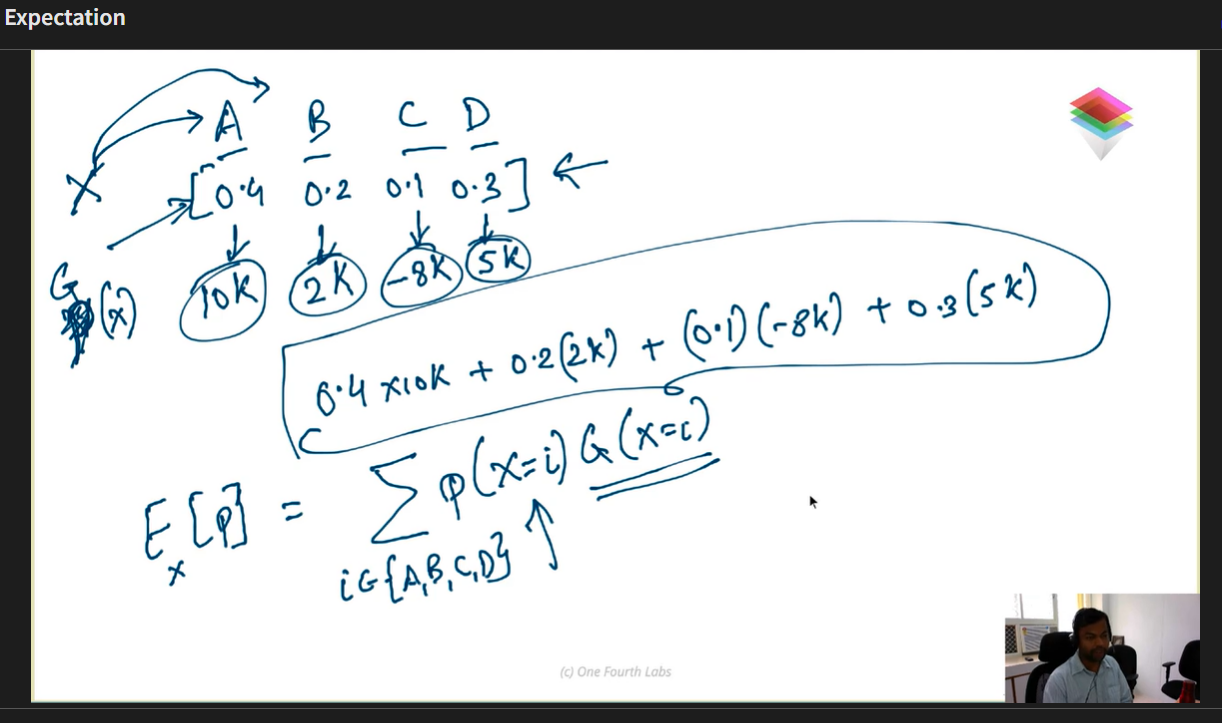 Expectation
A B C D
X [0.4 0.2 0.1 0.3]
G(x) 10K 2K -8K 5K
0.4 x10K + 0.2(2K) + (0.1)(-8K) + 0.3(5K)
E [p] = Σ p(X=i) G(X=i)
x i∈{A,B,C,D}
(c) One Fourth Labs